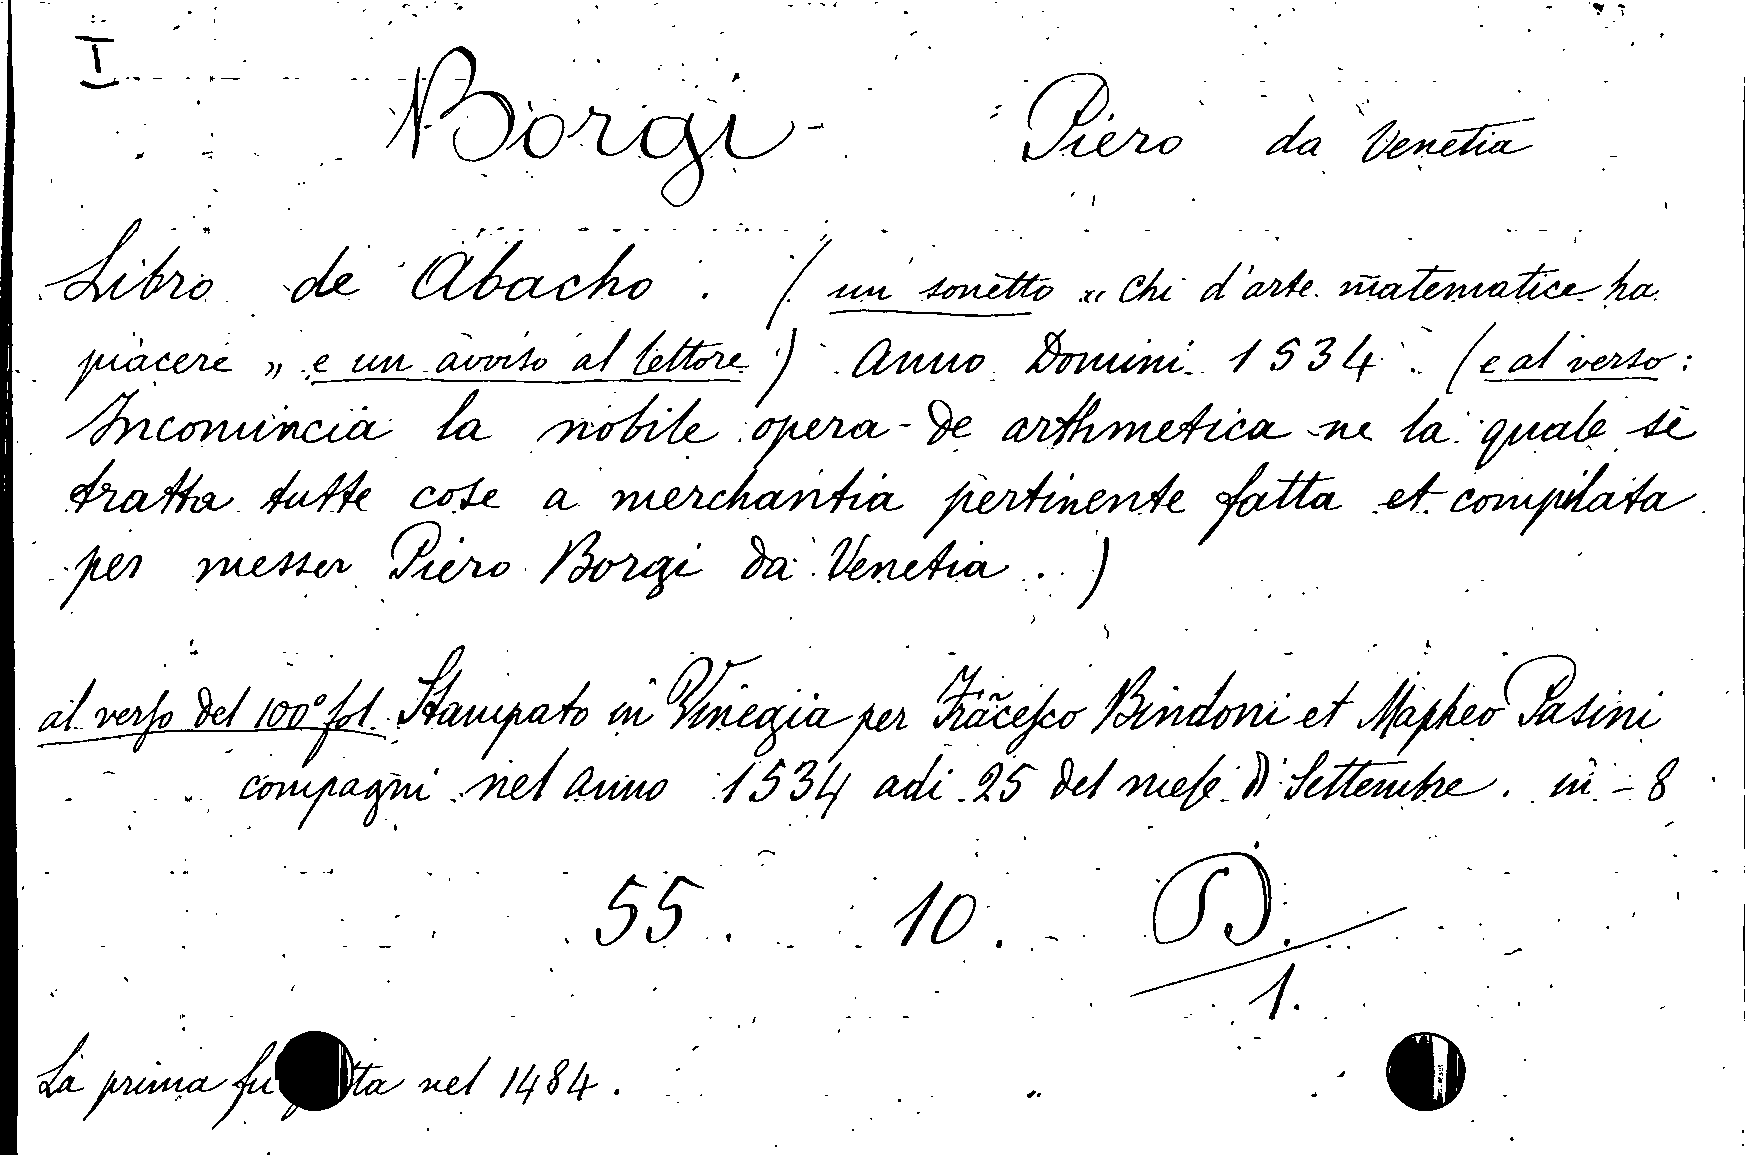 I
Borgi Piero da Venetia
Libro de Abacho. (un sonetto „ Chi d'arte matematice ha
piacere „ e un avviso al lettore) Anno Domini 1534. (e al verso:
Incomincia la nobile opera de arthmetica ne la quale si
tratta tutte cose a merchantia pertinente fatta et compilata
per messer Piero Borgi da Venetia..)
al verso del 100° fol. Stampato in Vinegia per Frãcesco Bindoni et Mapheo Pasini
compagni nel anno 1534 adi 25 del mese di Settembre. in-8
55. 10. D.
1.
La prima fu nel 1484.